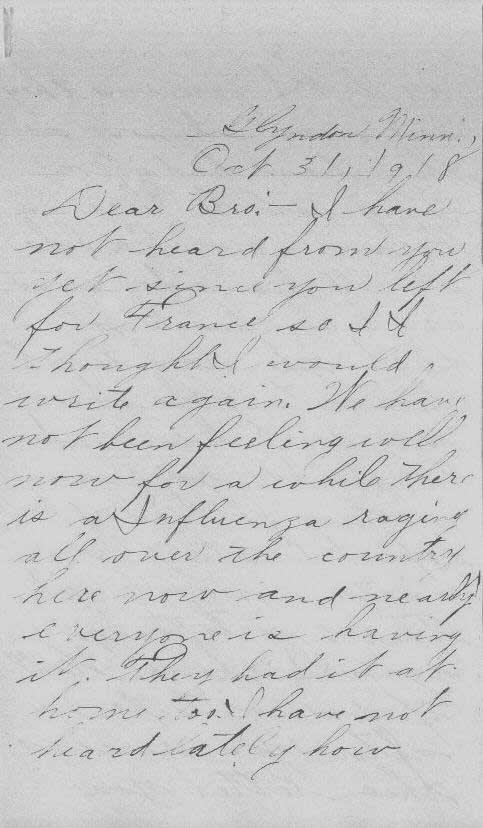 Glyndon Minn.,
Oct. 31, 1918
Dear Bro:— I have
not heard from you
yet since you left
for France so I I
thought I would
write again. We have
not been feeling well
now for a while there
is a Influenza raging
all over the country
here now and nearly
everyone is having
it. They had it at
home too. I have not
heard lately how